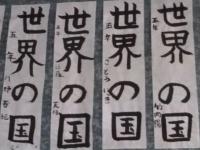 世界の国
五年
世界の国
五年
世界の国
世界の国
五年